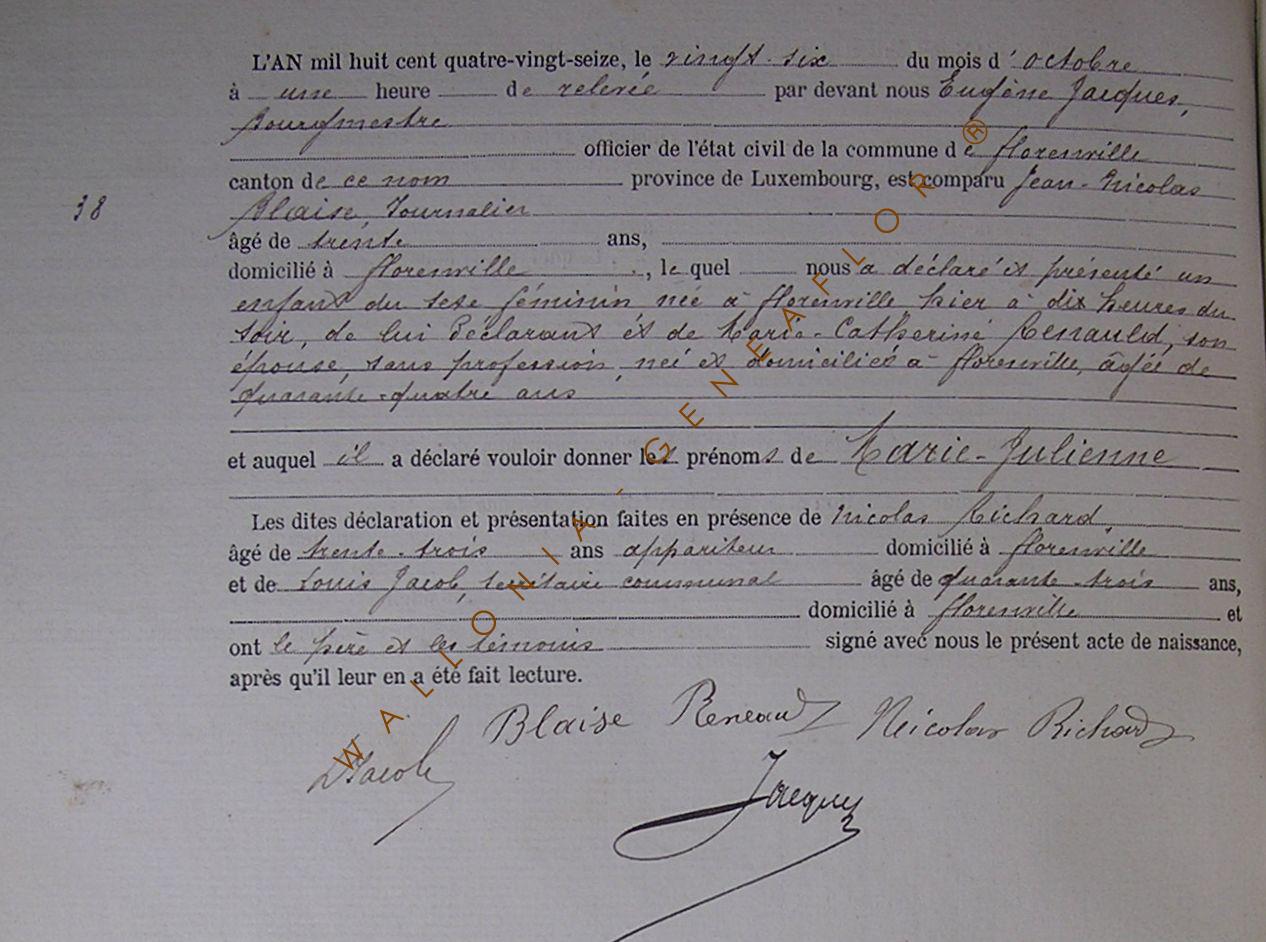 L'AN mil huit cent quatre-vingt-seize, le vingt-six du mois d'octobre
à une heure de relevée par devant nous Eugène Jacques,
bourgmestre
officier de l'état civil de la commune de florenville
canton de ce nom province de Luxembourg, est comparu Jean-Nicolas
38
Blaise Journalier
âgé de trente ans,
domicilié à florenville, le quel nous a déclaré et présenté un
enfant du sexe féminin née à florenville hier à dix heures du
soir, de lui Déclarant et de Marie-Catherine Renauld, son
épouse, sans profession, née et domiciliée à florenville, âgée de
quarante-quatre ans
et auquel il a déclaré vouloir donner les prénoms de Marie-Julienne
Les dites déclaration et présentation faites en présence de Nicolas Richard,
âgé de trente-trois ans appariteur domicilié à florenville
et de Louis Jacob, secrétaire communal âgé de quarante-trois ans,
domicilié à florenville et
ont le père et les témoins signé avec nous le présent acte de naissance,
après qu'il leur en a été fait lecture.
Blaise Reneaud Nicolas Richard
LJacob
Jacques
WALLONIA-GENEAFLOR®